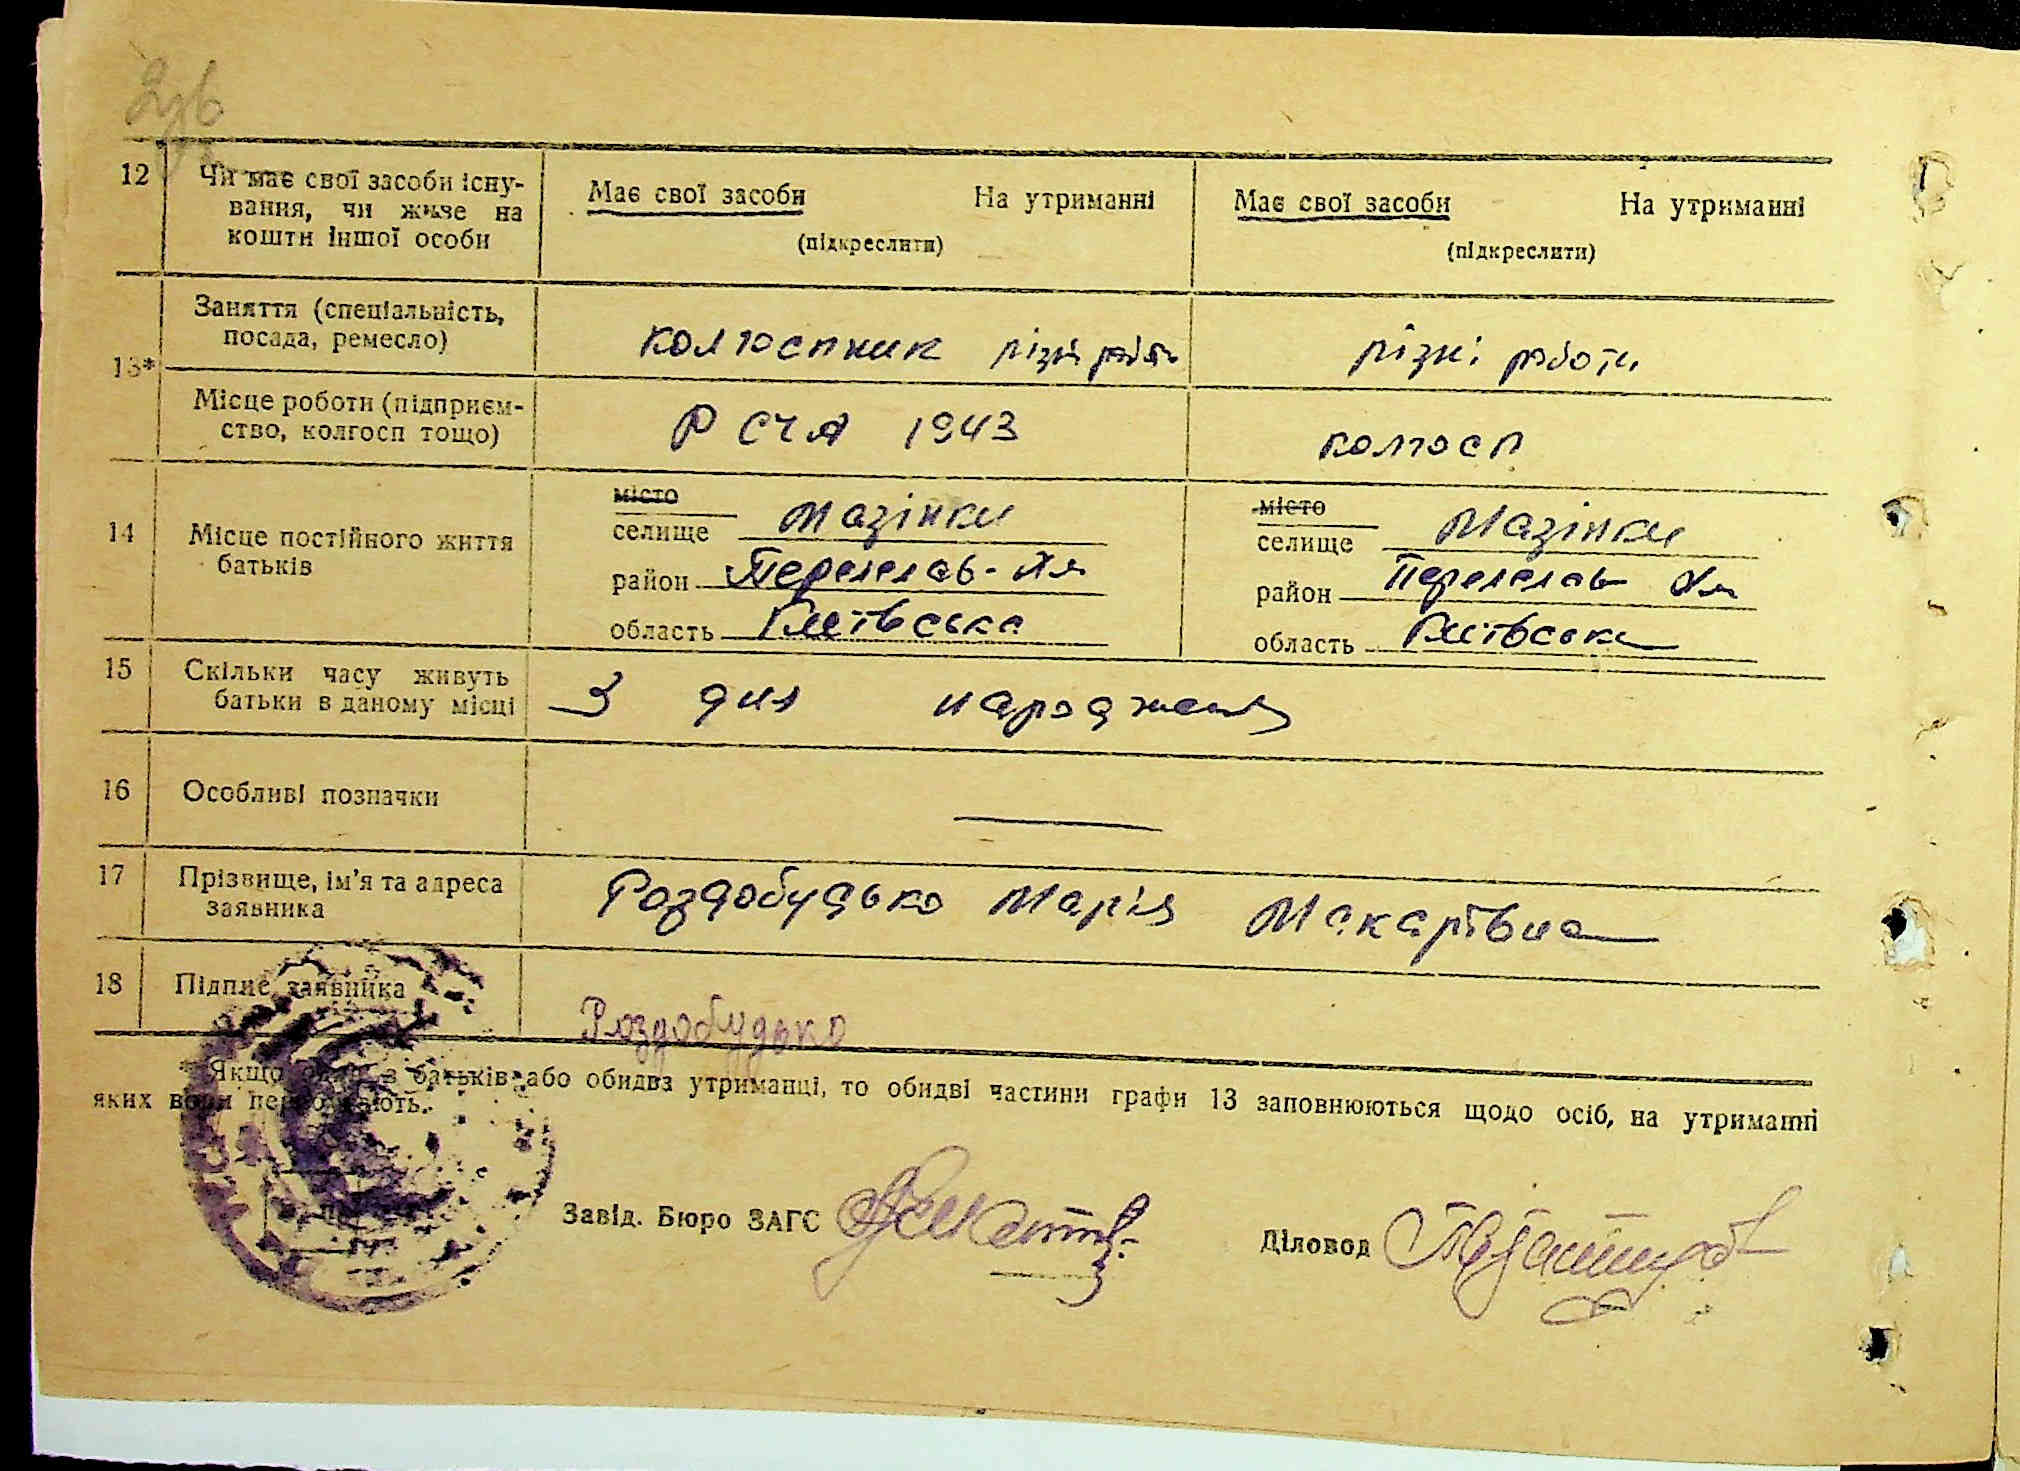 12 Чи має свої засоби існу-
вання, чи живе на
кошти іншої особи
Має свої засоби На утриманні
(підкреслити)
Має свої засоби На утриманні
(підкреслити)
13*
Заняття (спеціальність,
посада, ремесло)
колгоспник різні роботи
різні роботи
Місце роботи (підприєм-
ство, колгосп тощо)
РСЧА 1943
колгосп
14 Місце постійного життя
батьків
місто
селище Мазінки
район Переяслав-Хм
область Київська
місто
селище Мазінки
район Переяслав Хм
область Київська
15 Скільки часу живуть
батьки в даному місці
З дня народження
16 Особливі позначки
17 Прізвище, ім'я та адреса
заявника
Роздобудько Марія Макарівна
18 Підпис заявника
Роздобудько
* Якщо один з батьків або обидва утриманці, то обидві частини графи 13 заповнюються щодо осіб, на утриманні
яких вони перебувають.
Завід. Бюро ЗАГС
Діловод